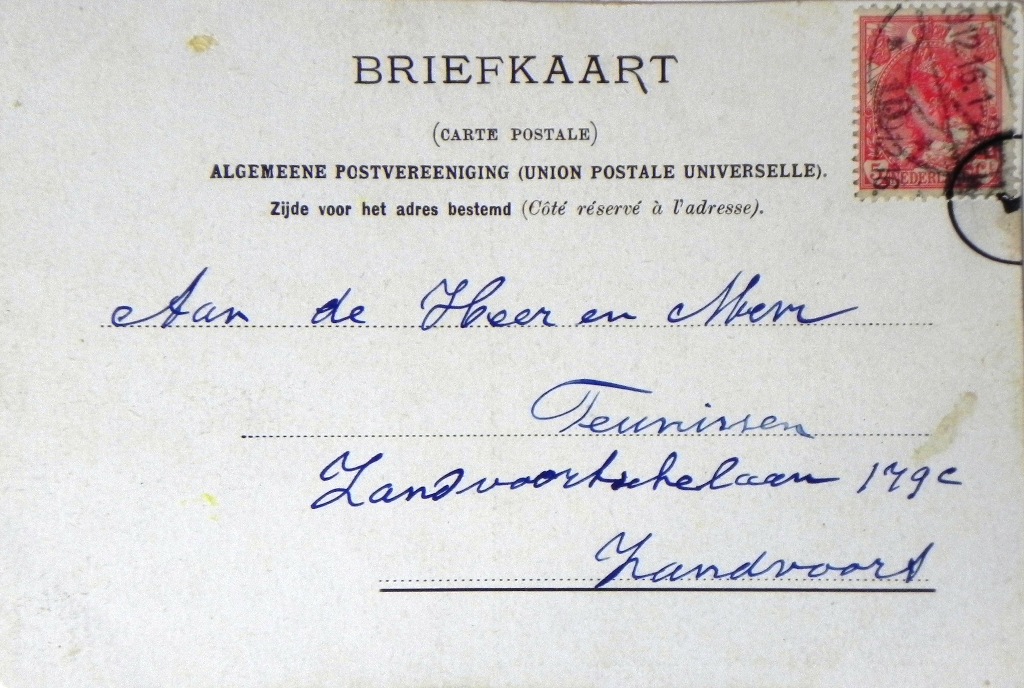 BRIEFKAART
(CARTE POSTALE)
ALGEMEENE POSTVEREENIGING (UNION POSTALE UNIVERSELLE).
Zijde voor het adres bestemd (Côté réservé à l'adresse).
Aan de Heer en Mevr
Teunissen
Zandvoortschelaan 179c
Zandvoort